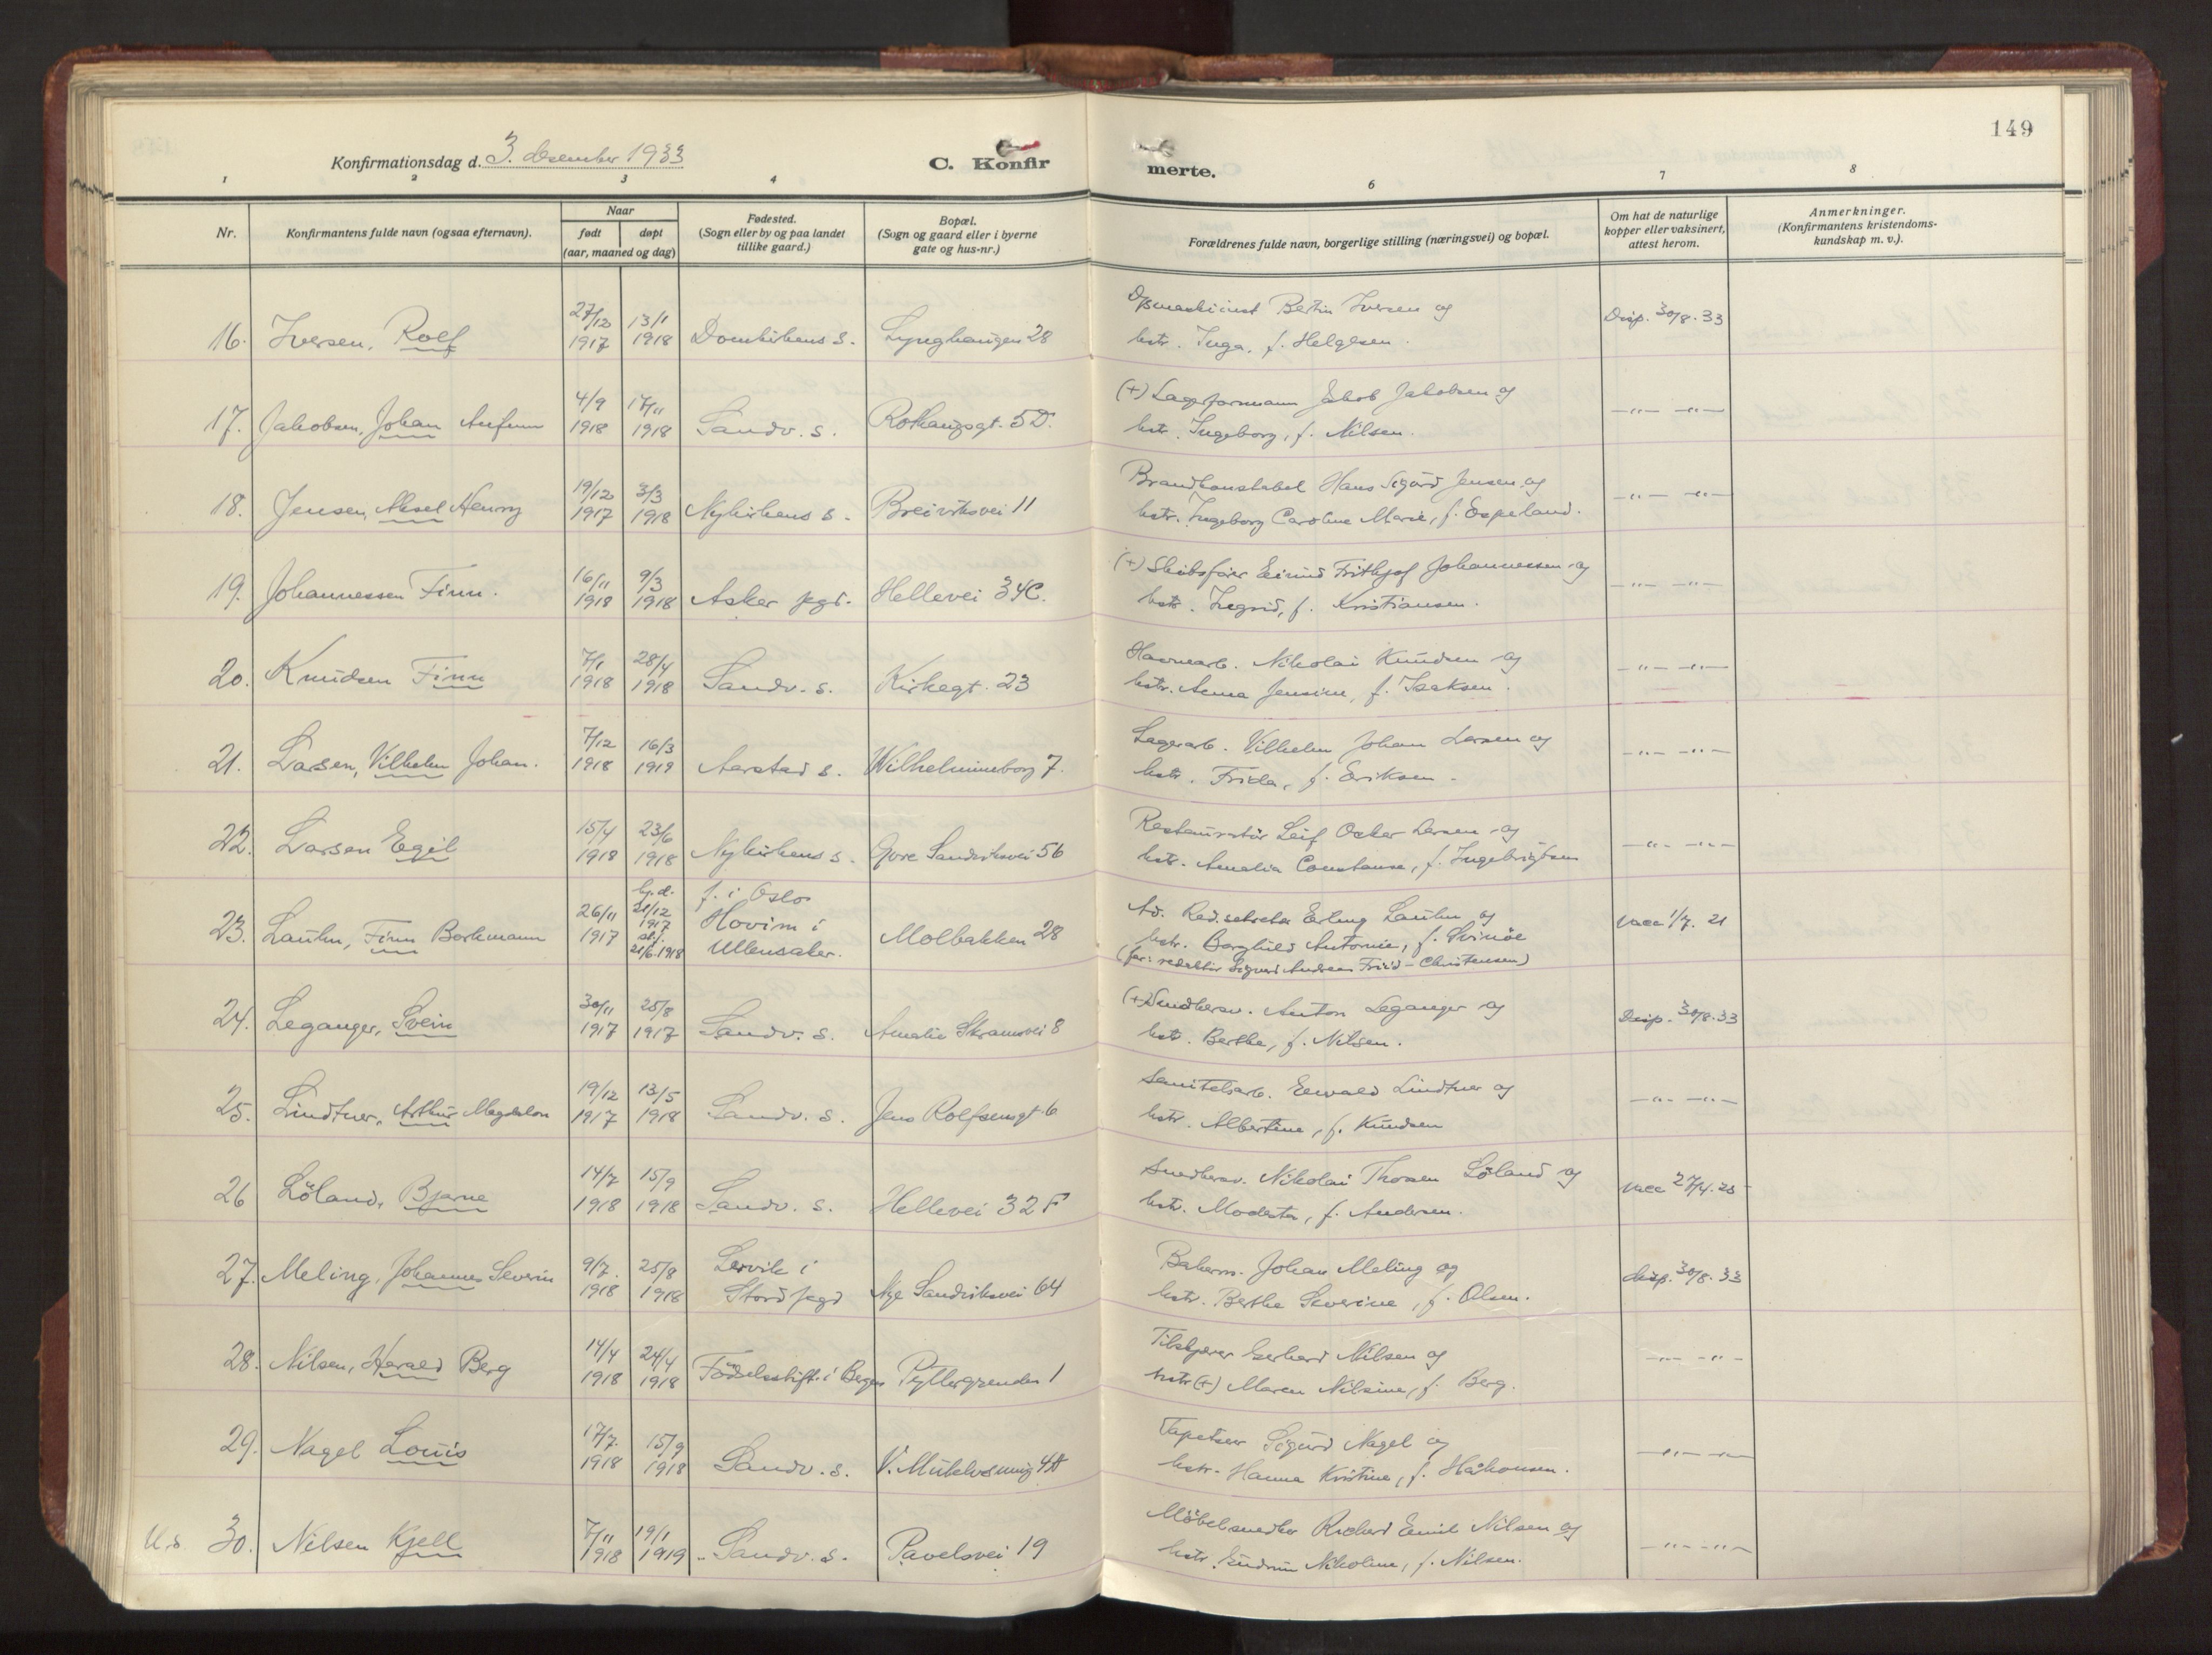 149
Konfirmationsdag d. 3. desember 1933
C. Konfir
merte.
1 2 3 4 6 7 8
Nr.
Konfirmantens fulde navn (ogsaa efternavn).
Naar
født døpt
(aar, maaned og dag)
Fødested.
(Sogn eller by og paa landet
tillike gaard.)
Bopæl.
(Sogn og gaard eller i byerne
gate og hus-nr.)
Forældrenes fulde navn, borgerlige stilling (næringsvei) og bopæl.
Om hat de naturlige
kopper eller vaksinert,
attest herom.
Anmerkninger.
(Konfirmantens kristendoms-
kundskap m. v.).
27/12 13/1 Dpsmaskinist Bertin Iversen og
16. Iversen, Rolf 1917 1918 Domkirkens s. Lynghaugen 28 Disp. 30/8.33
hstr. Inga, f. Helgesen.
4/9 17/11 (+) Lagerformann Jakob Jakobsen og
17. Jakobsen, Johan Arfinn 1918 1918 Sandv. s. Rothaugsgt. 5D. —„— —„—
hstr. Ingeborg, f. Nilsen.
19/12 3/3 Brandkonstabel Hans Sigurd Jensen og
18. Jensen, Aksel Henry 1917 1918 Nykirkens s. Breiviksvei 11 —„— —„—
hstr. Ingeborg Caroline Marie, f. Espeland.
16/11 9/3 (+) Skibsfører Eivind Frithjof Johannessen og
19. Johannessen Finn. 1918 1918 Asker pgd. Hellevei 34C. —„— —„—
hstr. Ingrid, f. Kristiansen.
7/1 28/4 Havnearb. Nikolai Knudsen og
20. Knudsen Finn 1918 1918 Sandv. s. Kirkegt. 23 —„— —„—
hstr. Anna Jensine, f. Isaksen.
7/12 16/3 Lagerarb. Vilhelm Johan Larsen og
21. Larsen, Vilhelm Johan. 1918 1919 Aarstad s. Wilhelmineborg 7. —„— —„—
hstr. Frida, f. Eriksen.
15/4 23/6 Restauratør Leif Oskar Larsen og
22. Larsen Egil 1918 1918 Nykirkens s. Øvre Sandviksvei 56 —„— —„—
hstr. Amalia Constanse, f. Ingebrigtsen
26/11 hj.d. 21/12 1917 f. i Oslo
23. Lauhn, Finn Borkmann 1917 st.f. 21/6.1918 Hovim i Ullensaker. Molbakken 28
Ad. Red.sekretær Erling Lauhn og vacc 1/7. 21
hstr. Borghild Antonie, f. Svinøe
(far: redaktør Sigurd Andreas Friid-Christensen)
30/11 25/8 (+) Snedkersv. Anton Leganger og
24. Leganger, Svein 1917 1917 Sandv. s. Amalie Skramsvei 8 Disp. 30/8.33
hstr. Berthe, f. Nilsen.
19/12 13/5 Sanitetsarb. Ewald Lindtner og
25. Lindtner, Arthur Magdalon 1917 1918 Sandv. s. Jens Rolfsensgt 6 —„— —„—
hstr. Albertine, f. Knudsen
14/7 15/9 Snedkersv. Nikolai Thosen Löland og
26 Löland, Bjarne 1918 1918 Sandv. s. Hellevei 32 F vacc 27/4.25
hstr. Modesta, f. Andersen.
9/7. 25/8 Lervik i Bakerm. Johan Meling og
27. Meling, Johannes Severin 1918 1918 Stord pgd Nye Sandviksvei 64 disp. 30/8.33
hstr. Berthe Severine, f. Olsen.
14/4 24/4 Tilskjærer Gerhard Nilsen og
28. Nilsen, Harald Berg 1918 1918 Fødselsstift. i Bergen Pyttergrenden 1 —„— —„—
hstr (+) Maren Nilsine, f. Berg.
17/7. 15/9 Tapetserer Sigurd Nagel og
29. Nagel Louis 1918 1918 Sandv. s. V. Mulelvsmug 4A —„— —„—
hstr. Hanna Kristine, f. Håkonsen.
7/11 19/1 Möbelsnedker Richard Emil Nilsen og
U.s. 30. Nilsen Kjell 1918 1919 Sandv. s. Pavelsvei 19 —„— —„—
hstr. Gudrun Nikoline, f. Nilsen.